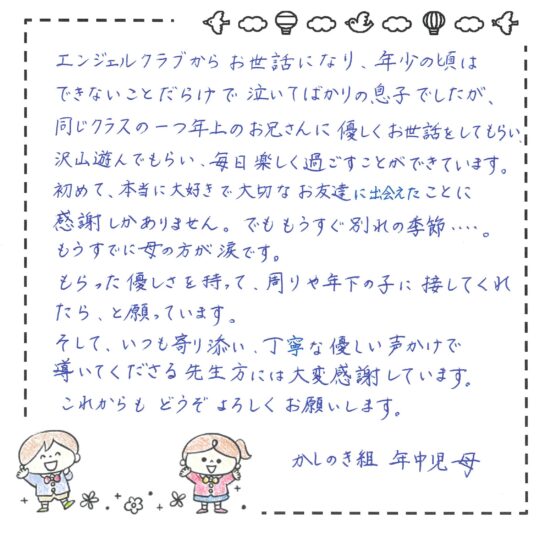 エンジェルクラブからお世話になり、年少の頃は
できないことだらけで泣いてばかりの息子でしたが、
同じクラスの一つ年上のお兄さんに優しくお世話をしてもらい、
沢山遊んでもらい、毎日楽しく過ごすことができています。
初めて、本当に大好きで大切なお友達に出会えたことに
感謝しかありません。でももうすぐ別れの季節‥‥。
もうすでに母の方が涙です。
もらった優しさを持って、周りや年下の子に接してくれ
たら、と願っています。
そして、いつも寄り添い、丁寧な優しい声かけで
導いてくださる先生方には大変感謝しています。
これからもどうぞよろしくお願いします。
かしのき組 年中児 母